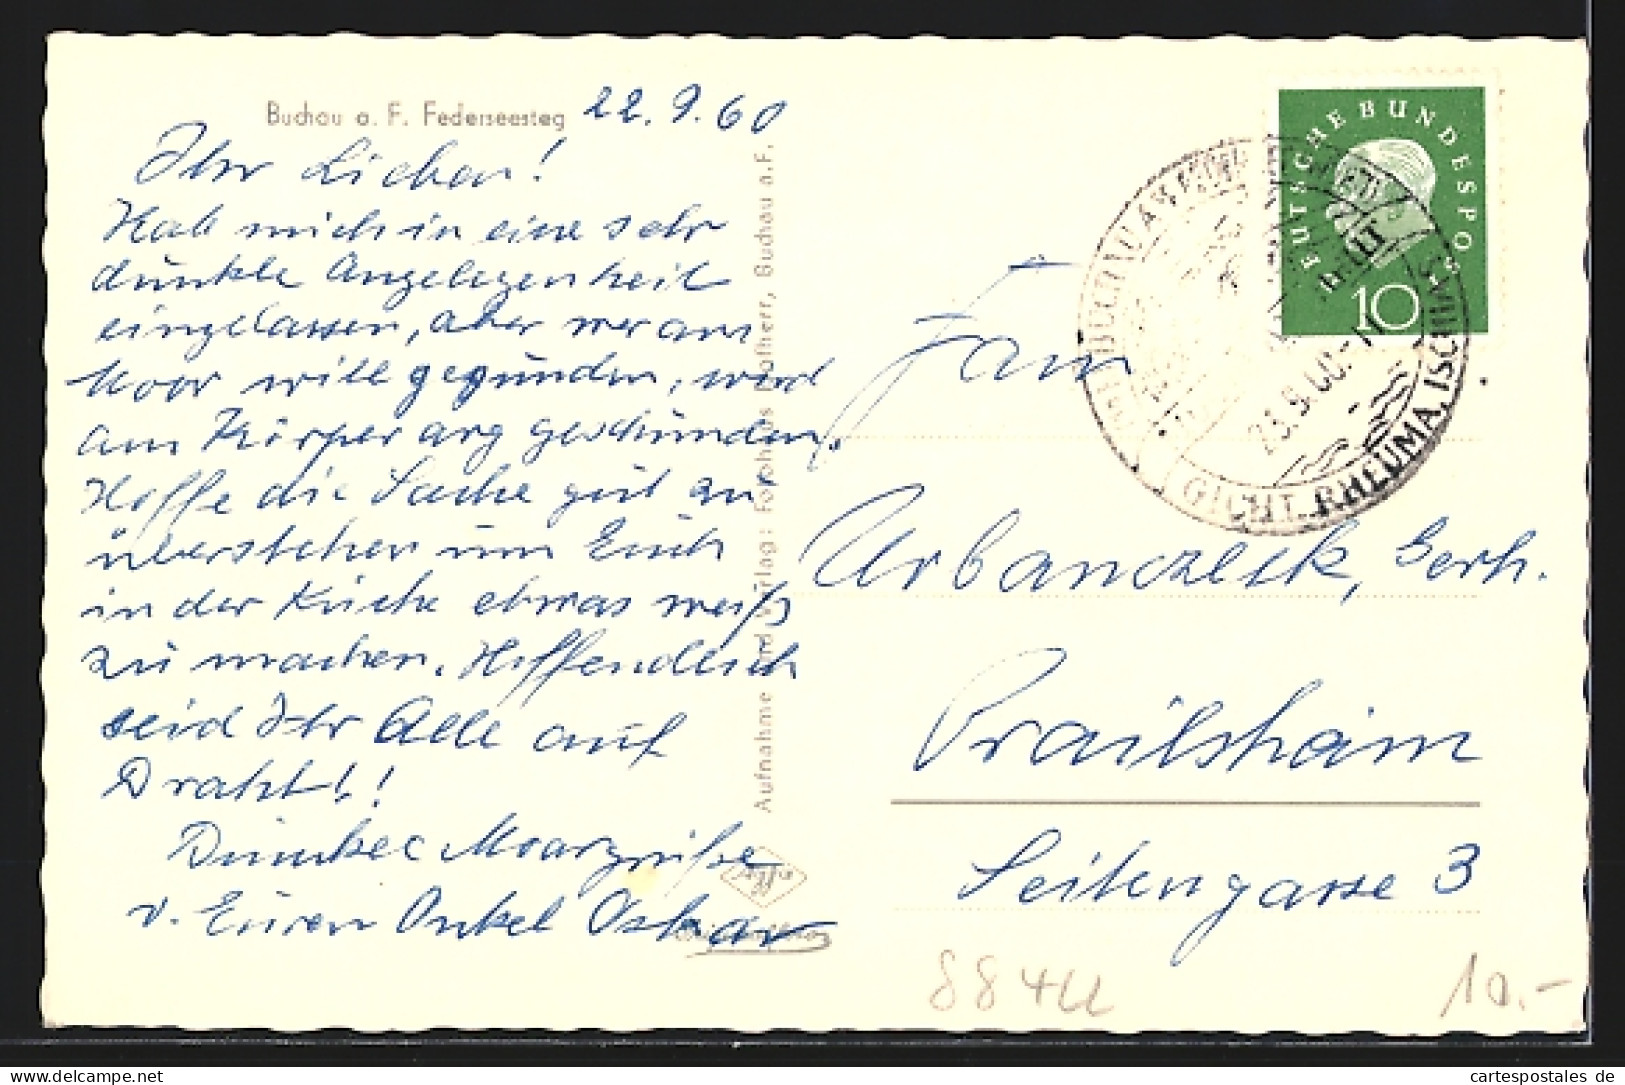 Buchau a. F. Federseesteg
22.9.60
Ihr Lieben!
Hab mich in eine sehr
dunkle Angelegenheit
eingelassen, aber wer ans
Moor will
wird
am Körper arg geschunden.
Hoffe die Sache gut zu
überstehen um Euch
in der Küche etwas weiß
zu machen. Hoffendlich
seid Ihr Alle auf
Draht!!
Dunkle Moorgrüße
v. Euren Onkel Oskar
Aufnahme und Verlag: Fotohaus Hofherr, Buchau a.F.
DEUTSCHE BUNDESPOST
10
GICHT, RHEUMA, ISCHIAS
Fam
Urbanczeck, Gerh.
Crailsheim
Seitengasse 3
10.-
cartespostales de